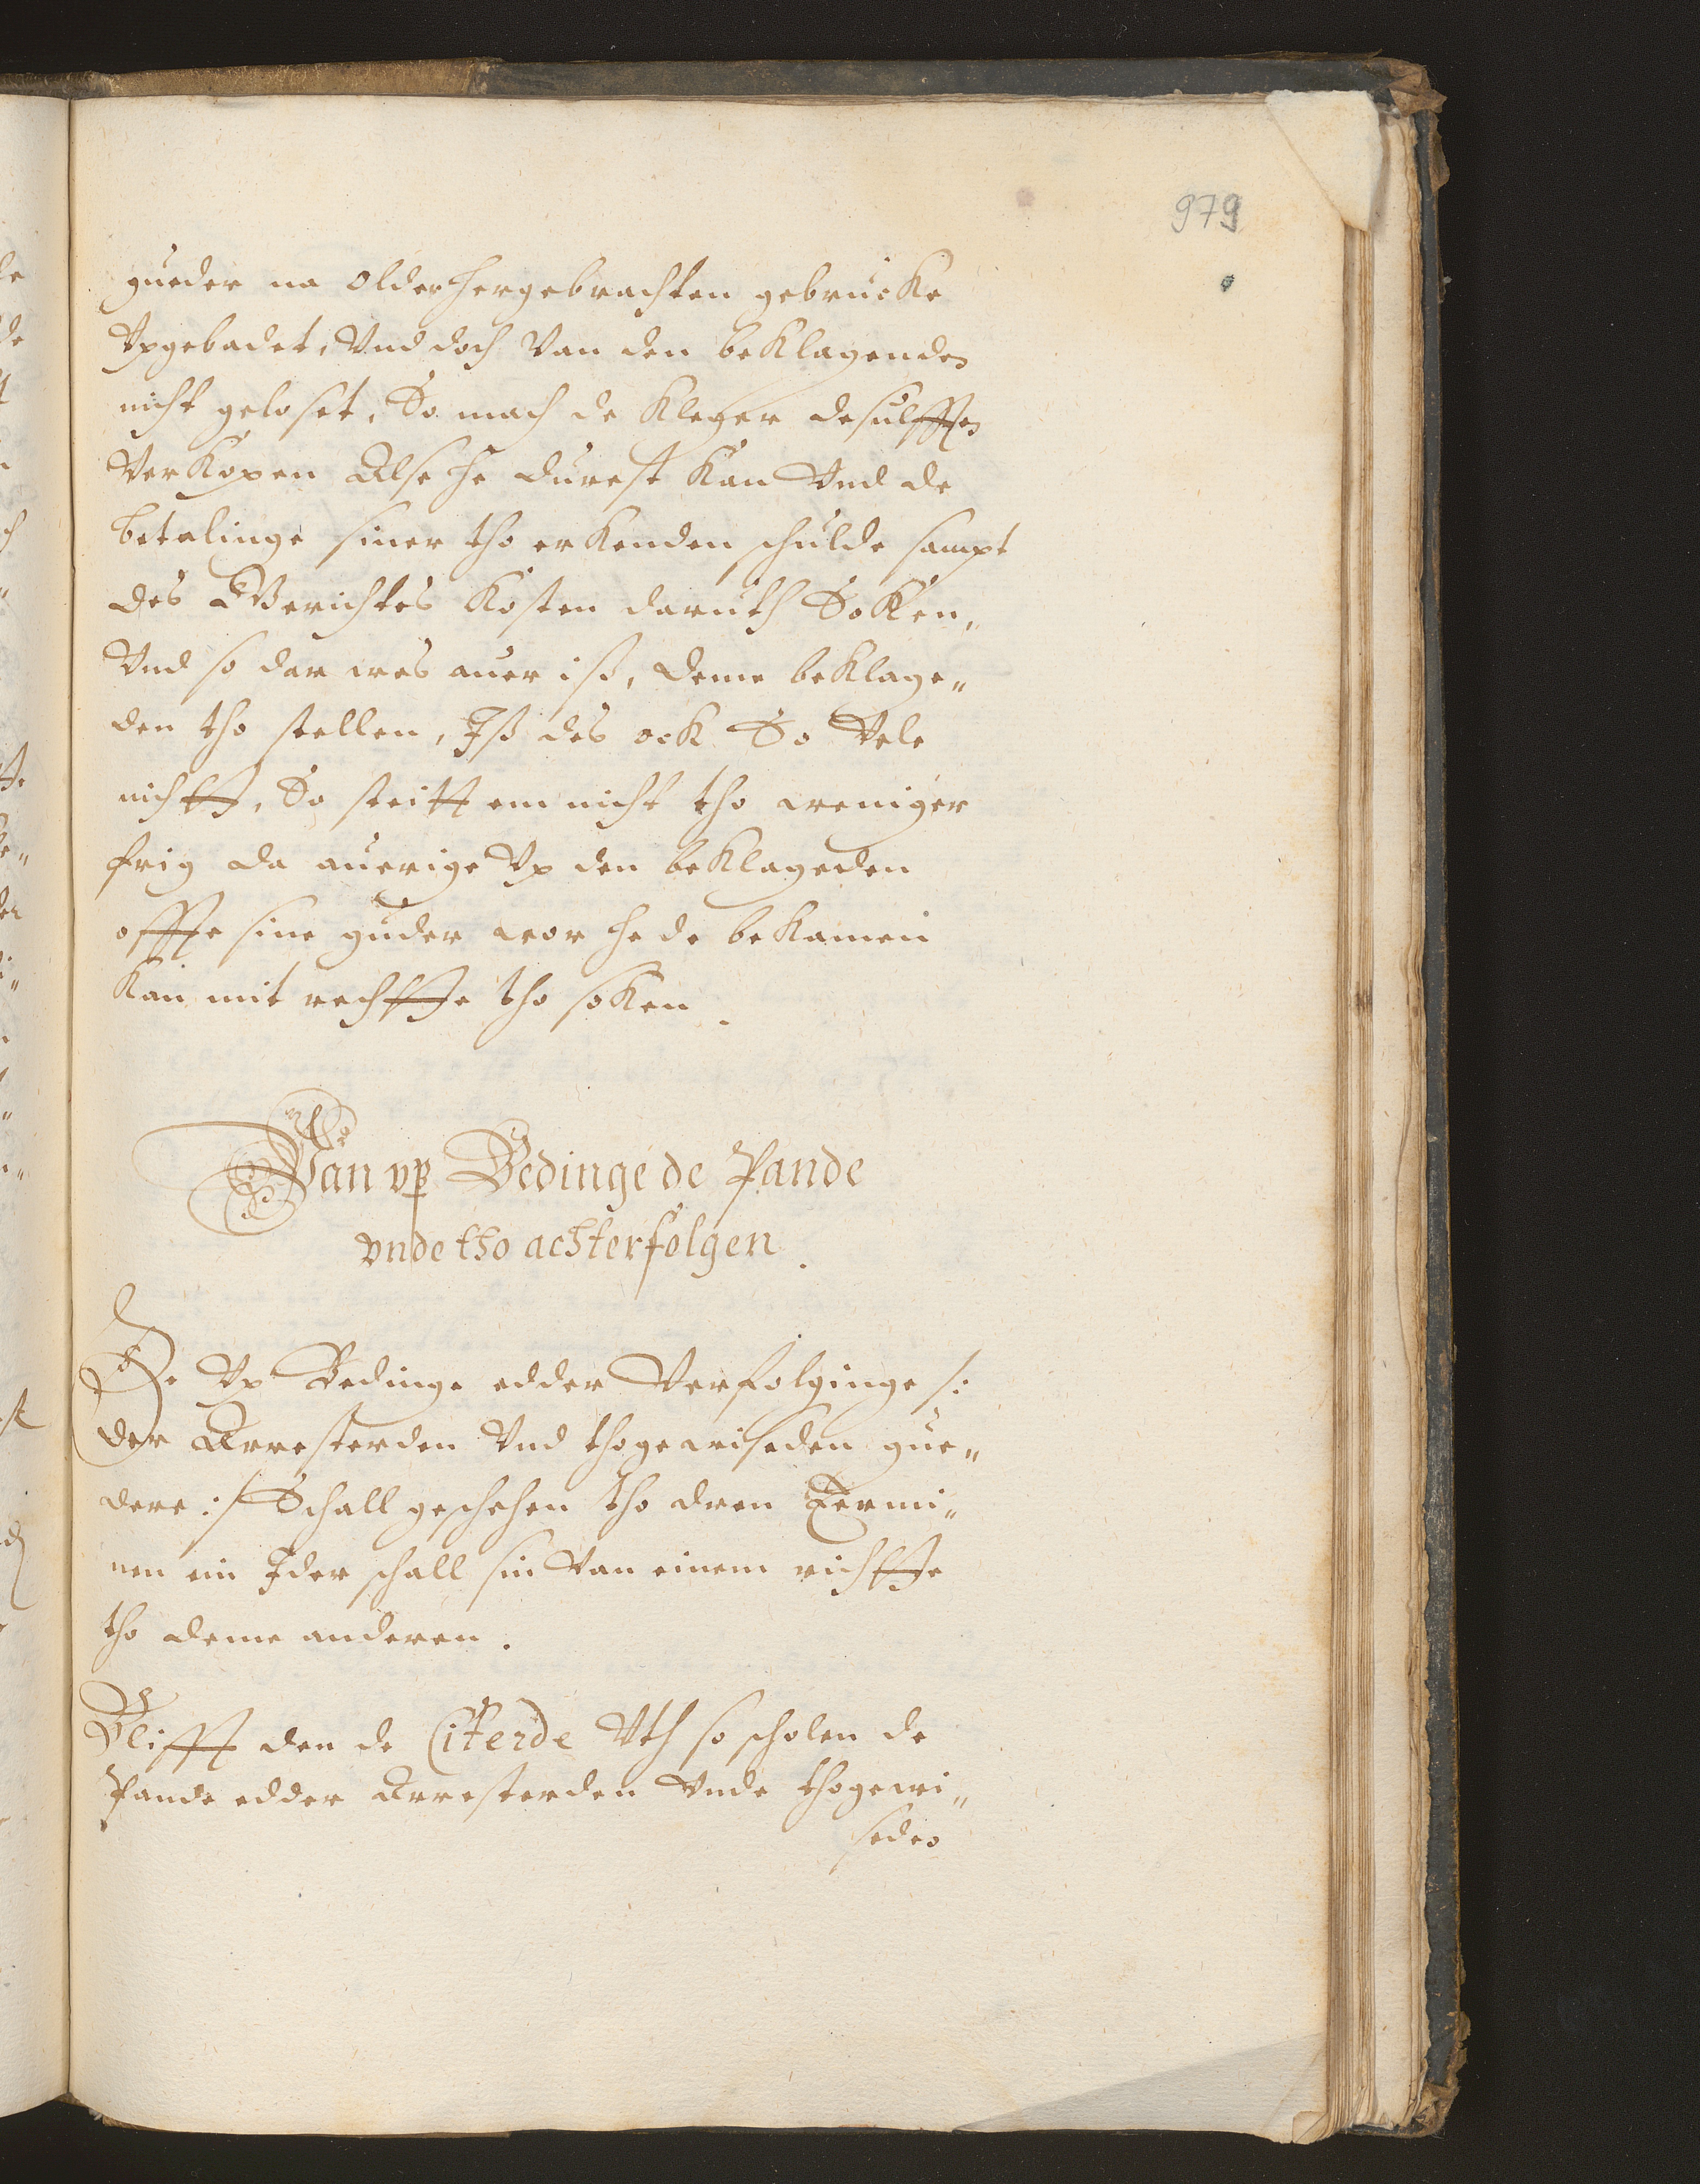 979
gueder na older hergebrachten gebrucke
Vpgebadet, Vnd doch Van den beklagenden
nicht geloset, So mach de Kleger desulfften
Verkopen Alse he durest kan Vnd de
betalinge siner tho erkenden schulde sampt
des Gerichtes Kosten daruth Soken,
Vnd so dar wes auer iß, deme beklage„
den tho stellen, Iß des ock So Vele
nichtt, So steitt em nicht tho weniger
frig da auerige Vp den beklageden
offte sine guder wor he de bekamen
kan mit rechtte tho soken.
Van vp Bedinge de Pande
vnde tho achterfolgen.
De Vp Bedinge edder Verfolginge /:
der Arresterden Vnd thogewiseden gue„
dere :/ Schall geschehen tho dren Termi„
nen ein Jder schall sin Van einem richtte
tho deme anderen.
Blifft den de Citerde Vth so scholen de
Pande edder Arresterden Vnde thogewi„
seden